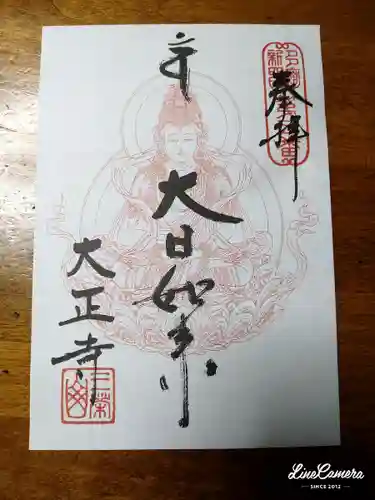 奉拝
大日如来
大正寺
LineCamera
SINCE 2012